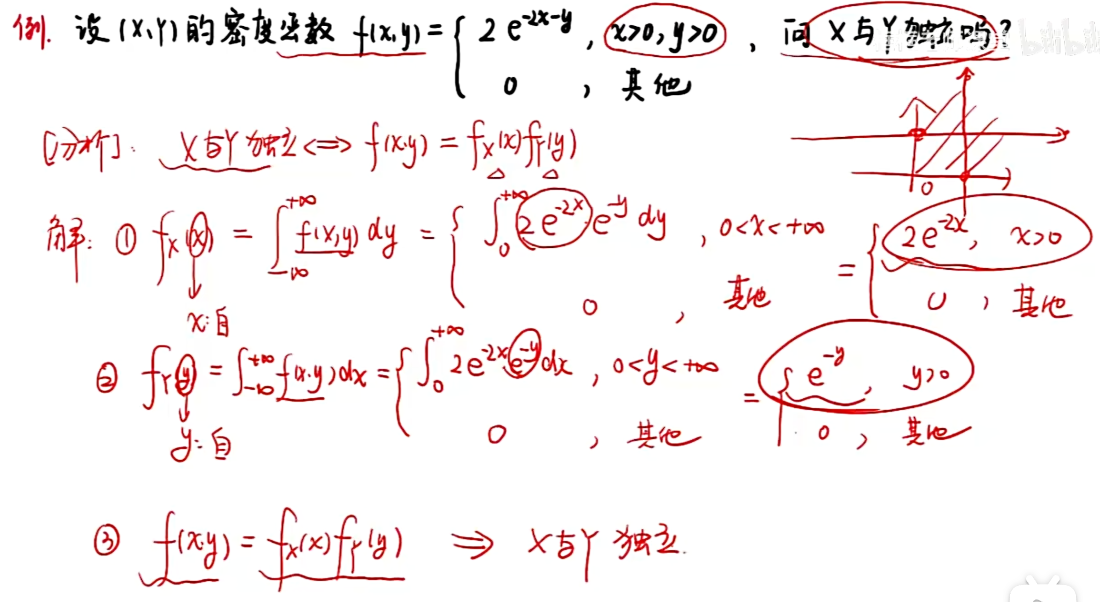 例. 设(X,Y)的密度函数 f(x,y) = { 2e^{-2x-y}, x>0, y>0 ; 0, 其他 , 问X与Y独立吗?
[分析]: X与Y独立 <=> f(x,y) = f_X(x)f_Y(y)
0
解: ① f_X(x) = ∫_{-∞}^{+∞} f(x,y)dy = { ∫_0^{+∞} 2e^{-2x}·e^{-y}dy, 0<x<+∞ ; 0, 其他 = { 2e^{-2x}, x>0 ; 0, 其他
x:自
② f_Y(y) = ∫_{-∞}^{+∞} f(x,y)dx = { ∫_0^{+∞} 2e^{-2x}e^{-y}dx, 0<y<+∞ ; 0, 其他 = { e^{-y}, y>0 ; 0, 其他
y:自
③ f(x,y) = f_X(x)f_Y(y) ⇒ X与Y独立.